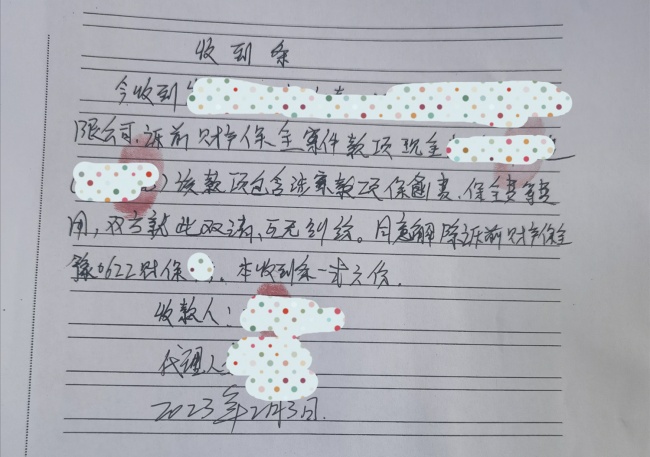 收到条
今收到
限公司,诉前财产保全案件款项现金
()该款项包含涉案款项、保函费、保全费等费
用,双方就此双清,互无纠纷。同意解除诉前财产保全
0622财保。本收到条一式
收款人:
代理人
2023年2月3日.